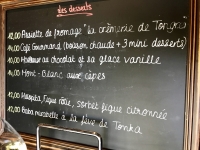 des desserts
12,00 Assiette de fromage "la crèmerie de
14,00 Café Gourmand (boisson chaude + 3 mini desserts)
10,00 au chocolat et sa glace vanille
14,00 Mont-Blanc aux cèpes
12,00 figue rôtie, sorbet figue citronnée
12,00 Baba mirabelle à la fève de Tonka